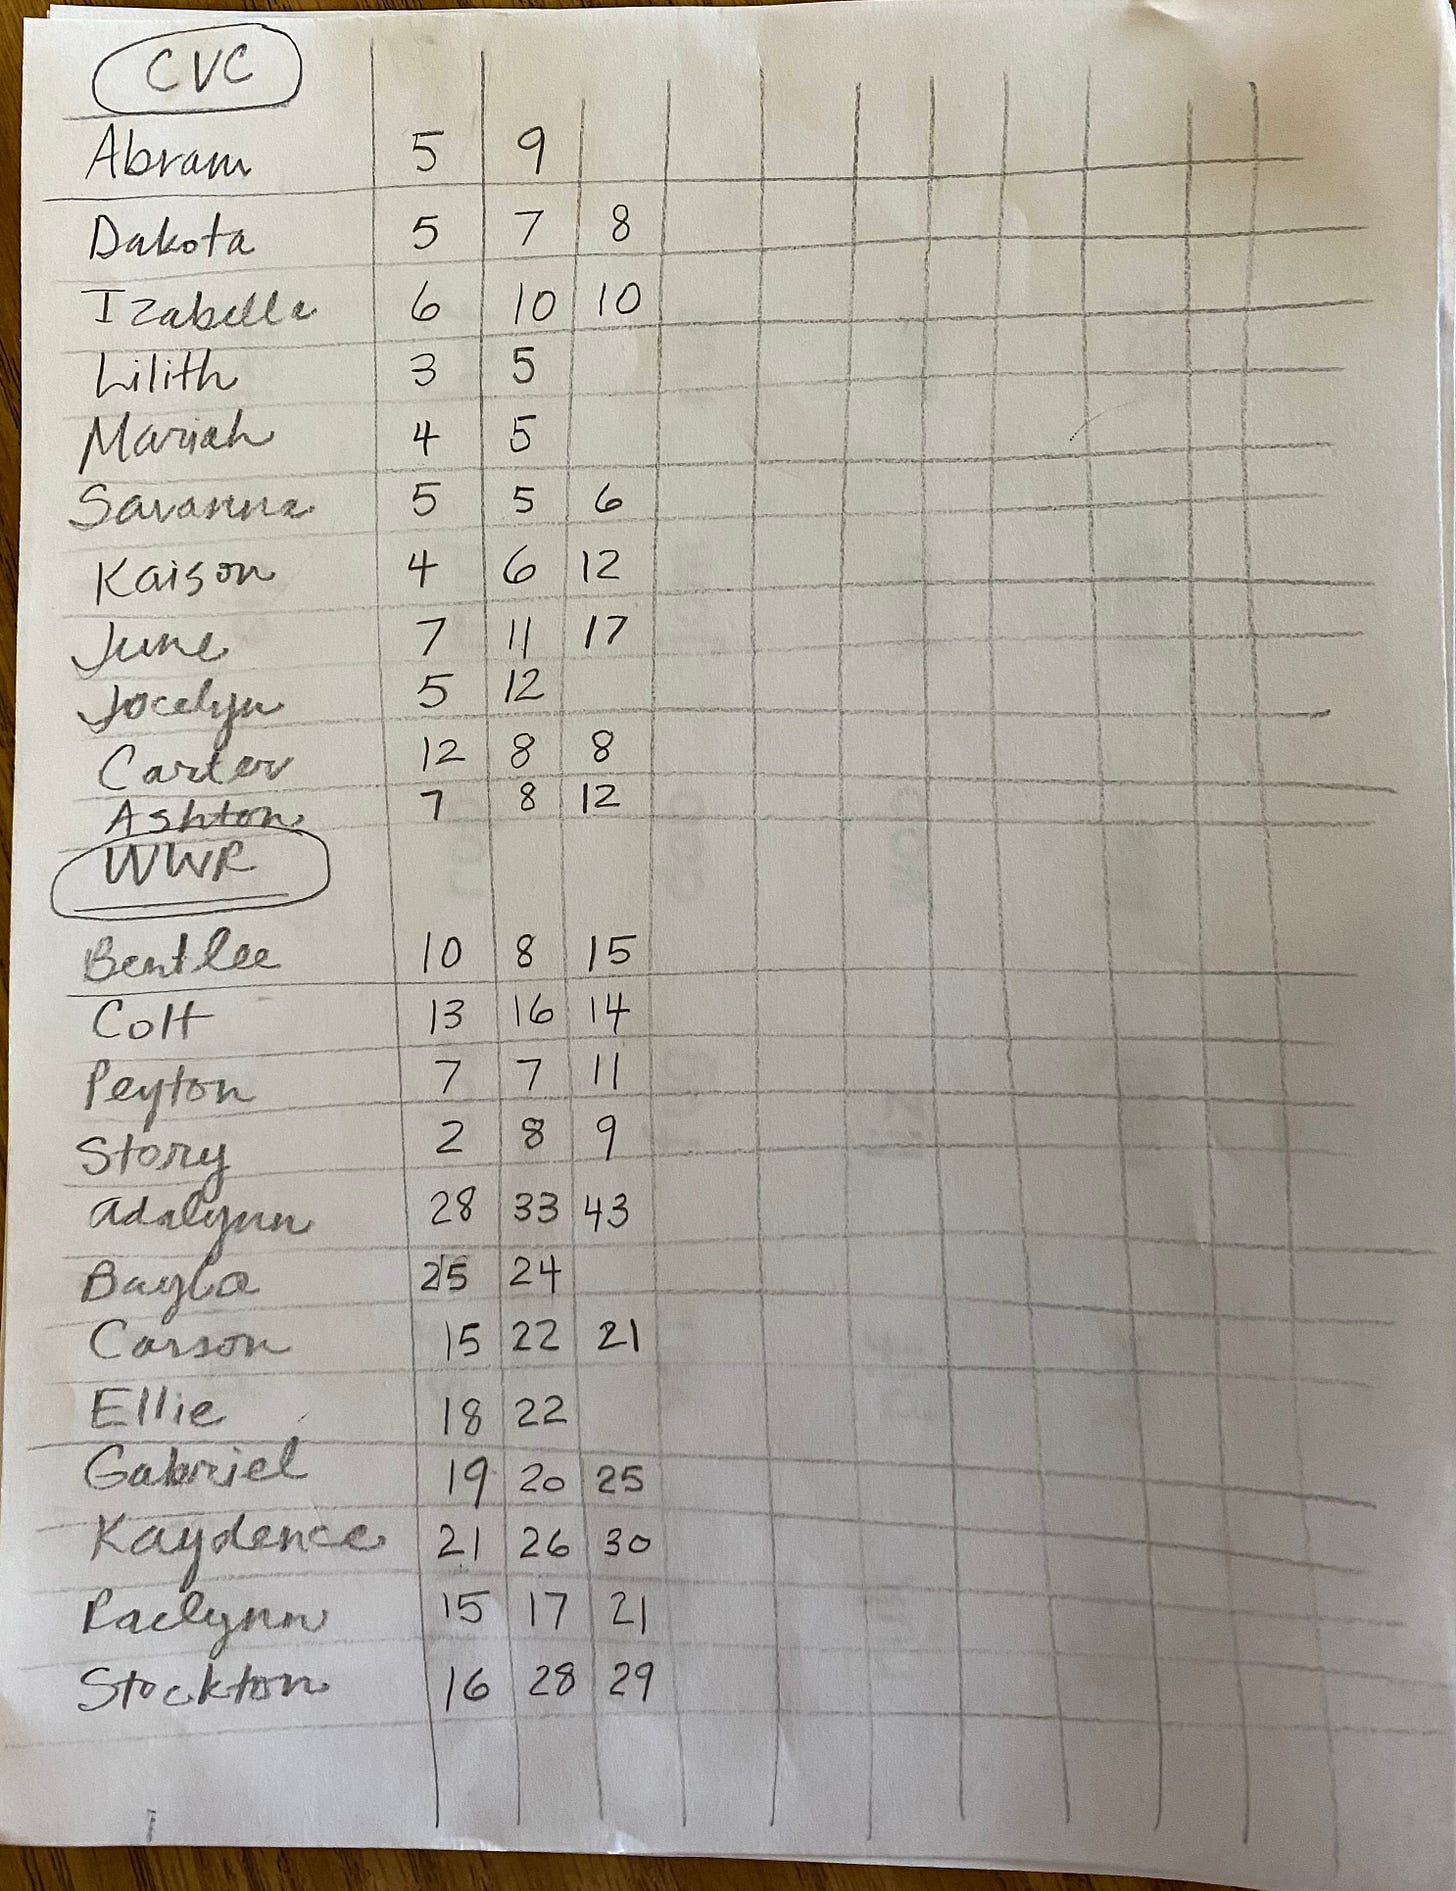 CVC
Abram 5 9
Dakota 5 7 8
Izabella 6 10 10
Lilith 3 5
Mariah 4 5
Savanna 5 5 6
Kaison 4 6 12
June 7 11 17
Jocelyn 5 12
Carter 12 8 8
Ashton 7 8 12
WWR
Bentlee 10 8 15
Colt 13 16 14
Peyton 7 7 11
Story 2 8 9
Adalynn 28 33 43
Bayla 25 24
Carson 15 22 21
Ellie 18 22
Gabriel 19 20 25
Kaydence 21 26 30
Raelynn 15 17 21
Stockton 16 28 29